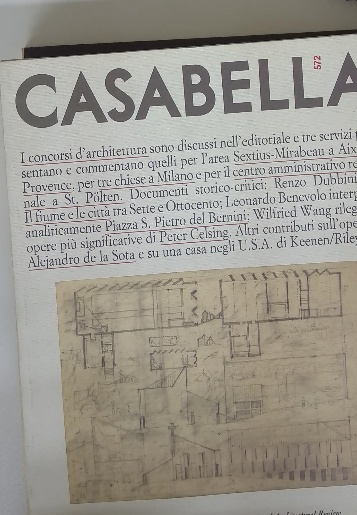 CASABELLA
572
I concorsi d'architettura sono discussi nell'editoriale e tre servizi
sentano e commentano quelli per l'area Sextius-Mirabeau a Aix
Provence, per tre chiese a Milano e per il centro amministrativo re
nale a St. Pölten. Documenti storico-critici: Renzo Dubbini
Il fiume e le città tra Sette e Ottocento; Leonardo Benevolo interp
analiticamente Piazza S. Pietro del Bernini; Wilfried Wang rileg
opere più significative di Peter Celsing. Altri contributi sull'ope
Alejandro de la Sota e su una casa negli U.S.A. di Keenen/Riley
Review